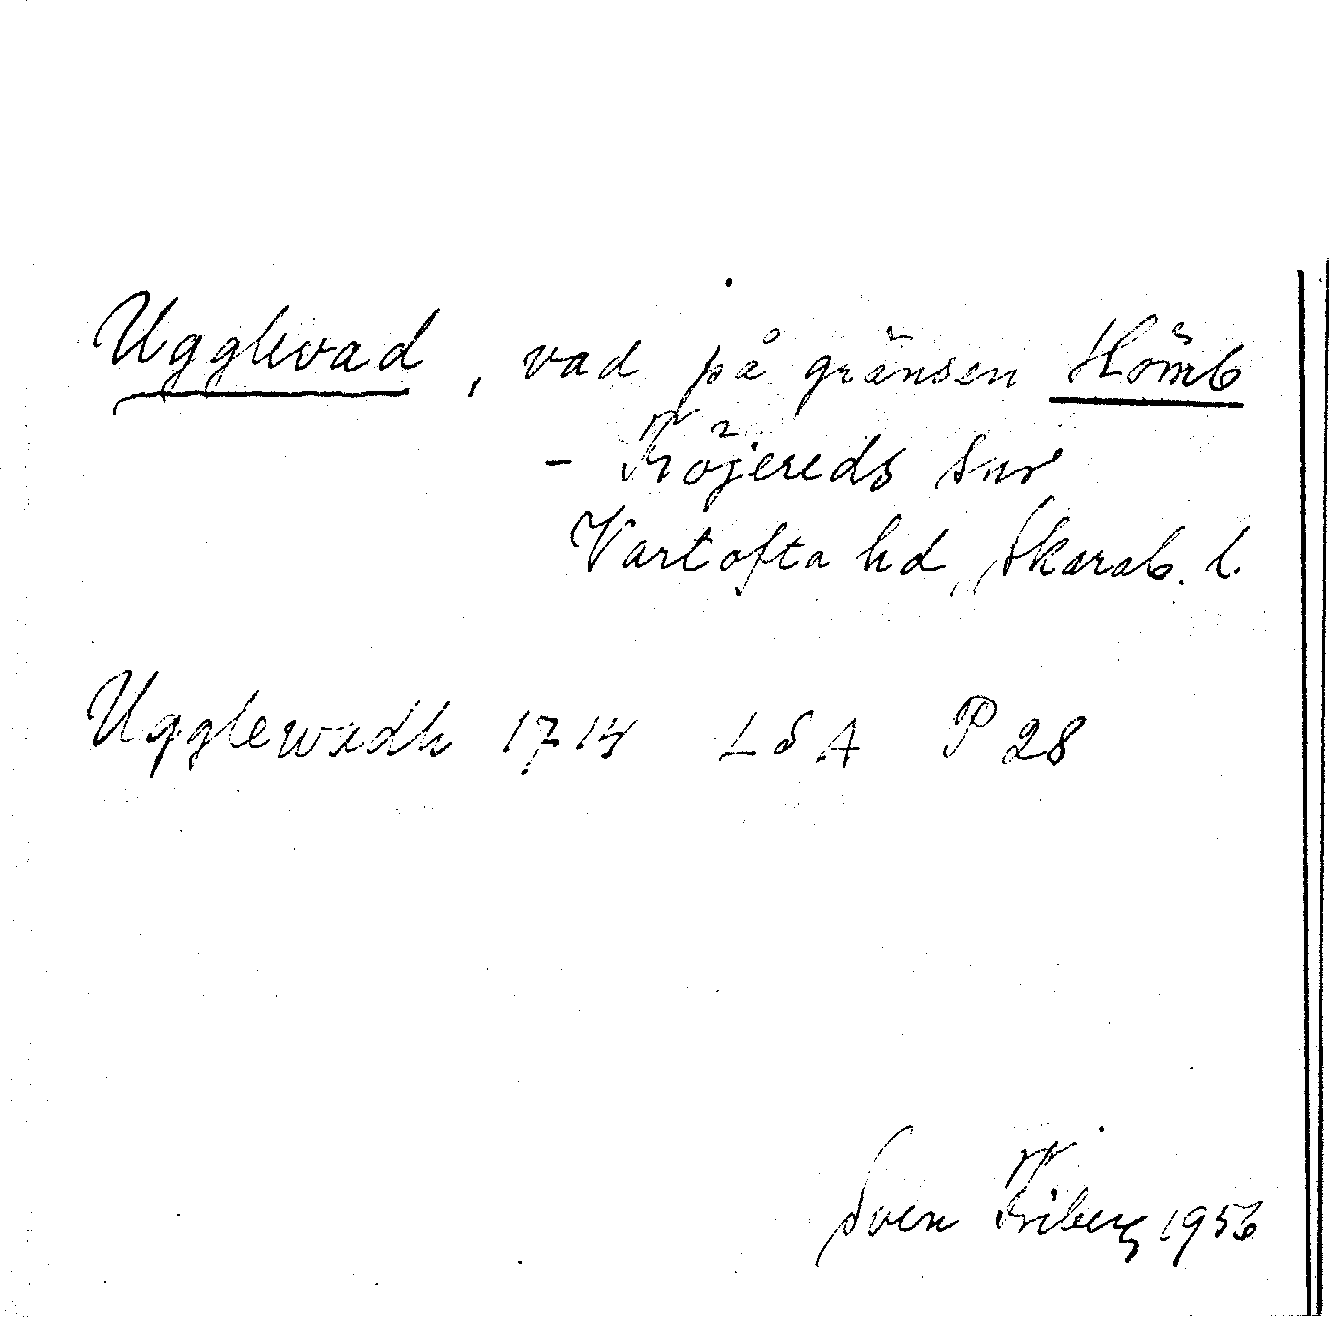 Ugglevad, vad på gränsen Hömb
- Fröjereds snr
Vartofta hd, Skarab. l.
Ugglewadh 1714 LSA P 28
Sven Friberg 1956